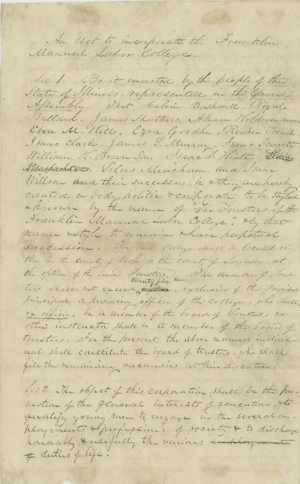 An Act to incorporate the Franklin
Manual Labor College.
Sec 1. Be it enacted by the people of the
State of Illinois, represented in the General
Assembly. That Calvin Royal
Bullard, James Mathers, Abram
Eben M. Hills, Ezra Goodhu, Reuben
Isaac Clark, James T. Murray,
William H. Brown
and Isaac
Willson and their successors, be & they are hereby
created a body politic & corporate to be styled
& known by the name of "The Trustees of the
Franklin Manual Labor College," & by that
name & style to remain & have perpetual
succession. The college shall be located in
the in the county of Cook or the county of at
the option of the Trustees. The number of trus
tees shall not exceed exclusive of the
Principal or presiding officer of the college, who shall
ex officio, be a member of the board of trustees; no
other instructor shall be a member of the board of
trustees. For the present the above named individ
uals shall constitute the board of trustees, who shall
fill the remaining vacancies at their discretion.
Sec 2. The object of this corporation shall be the pro
motion of the general interests of education, & to
qualify young men to engage in the several em
ployments & professions of society & to discharge
honorably & usefully the various
duties of life.